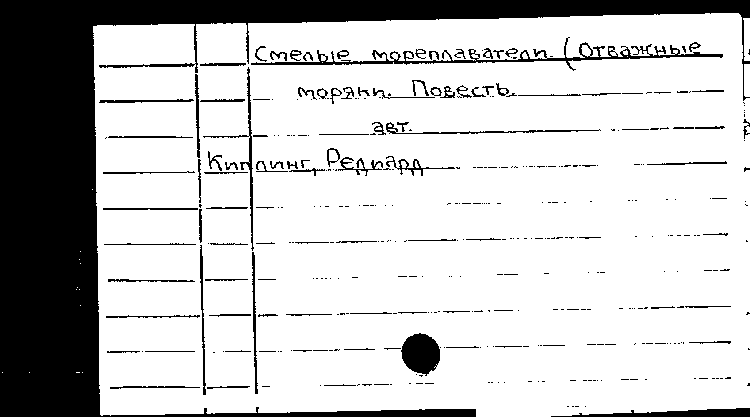 Смелые мореплаватели. (Отважные
моряки. Повесть.
авт.
Киплинг, Редиард